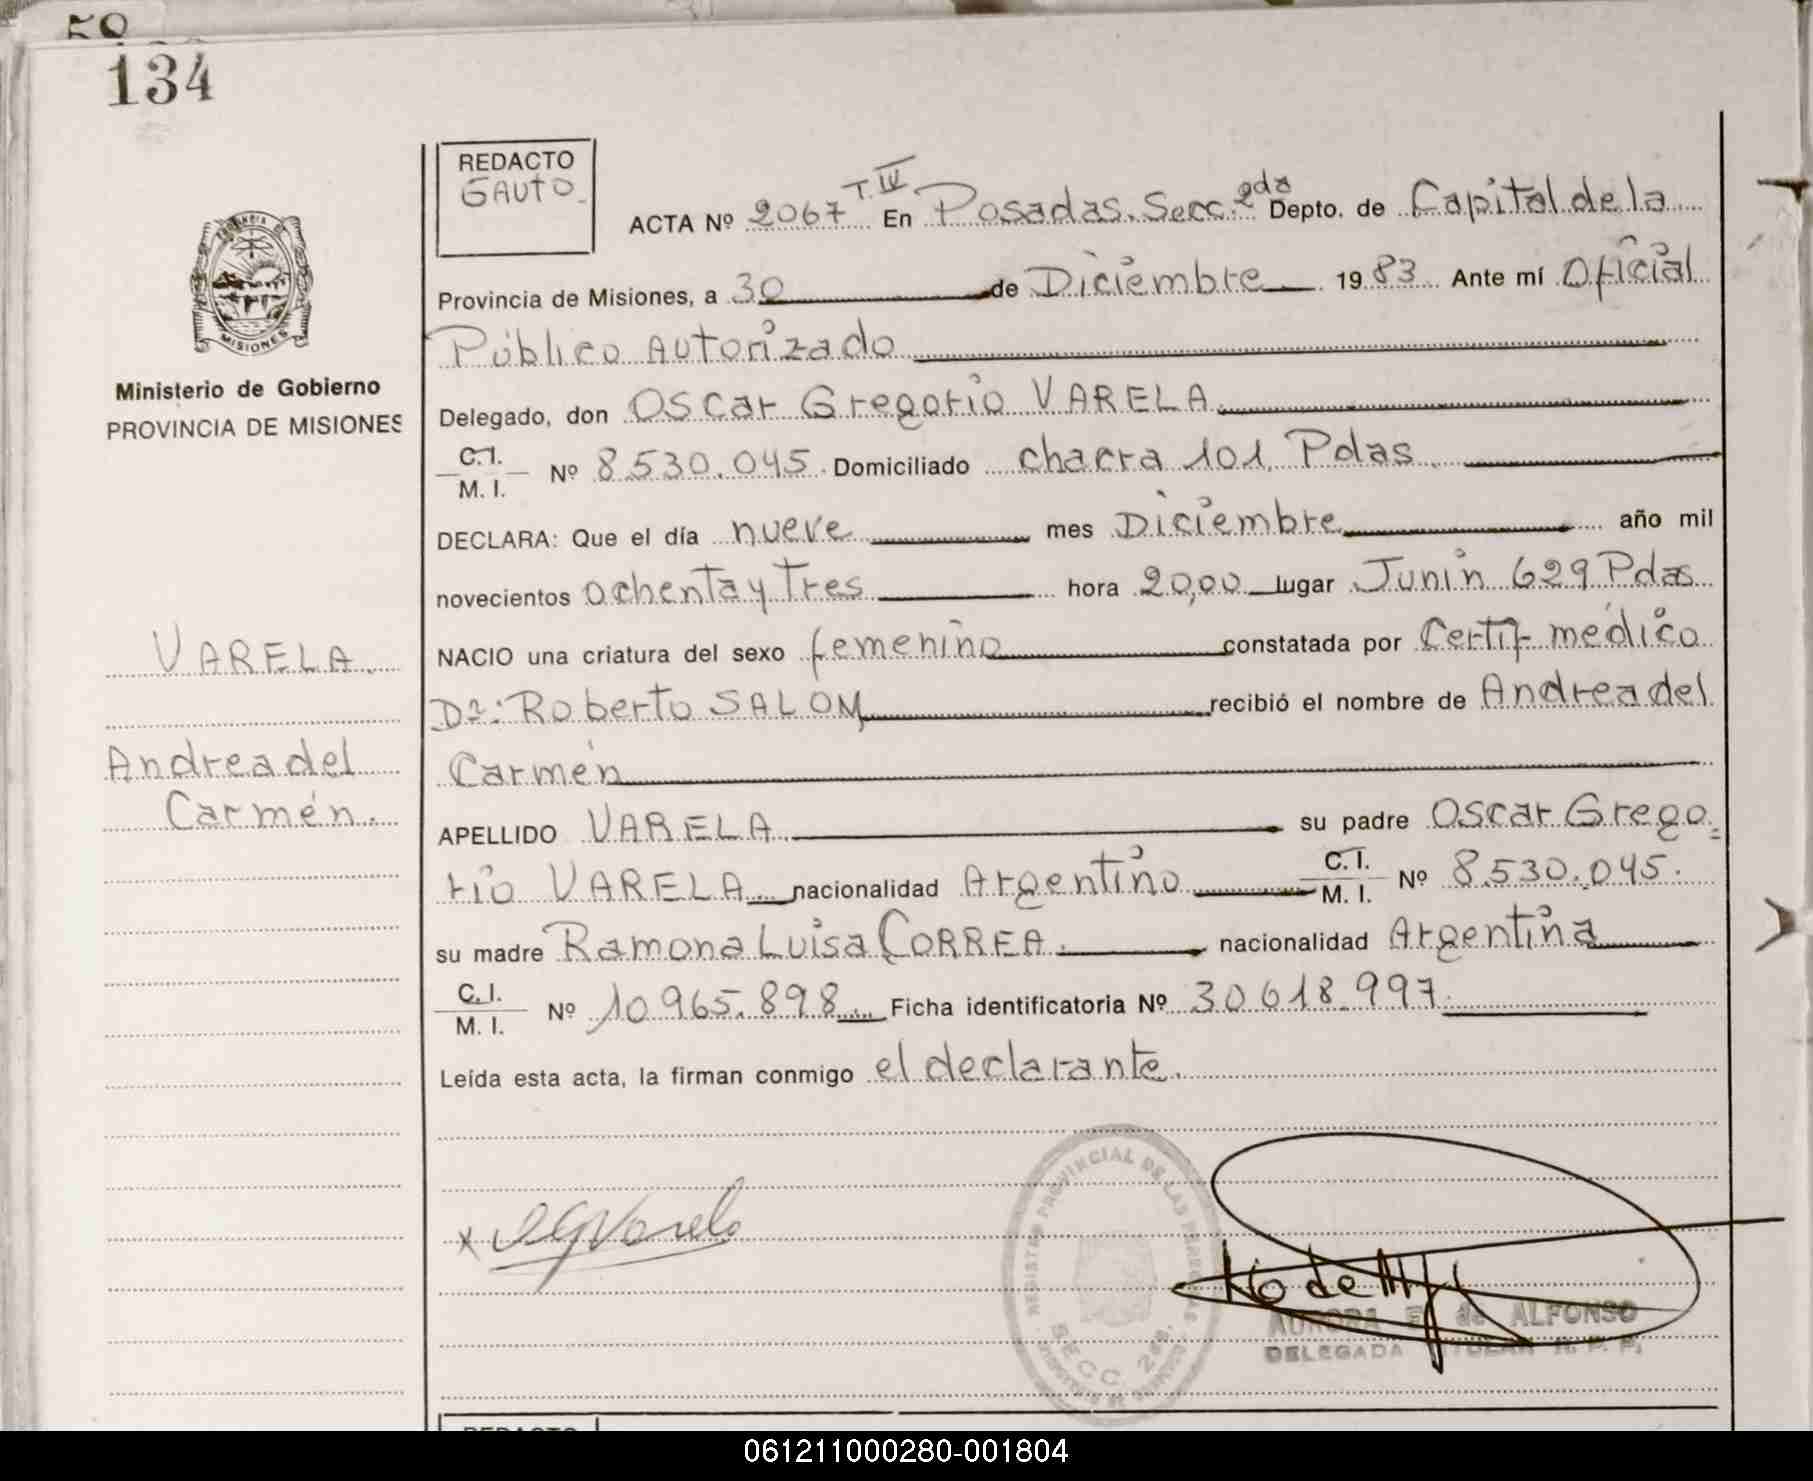 134
REDACTO
GAUTO
ACTA Nº 2067 T. IV En Posadas. Secc. 2da Depto. de Capital de la
Provincia de Misiones, a 30 de Diciembre 1983. Ante mí Oficial
Público Autorizado
Delegado, don Oscar Gregorio VARELA
C.I. / M. I. Nº 8.530.045. Domiciliado chacra 101. Pdas.
DECLARA: Que el día nueve mes Diciembre año mil
novecientos ochenta y Tres hora 20,00 lugar Junín 629 Pdas
NACIO una criatura del sexo femenino constatada por Certif. médico
Dr: Roberto SALOM recibió el nombre de Andrea del
Carmén
APELLIDO VARELA su padre Oscar Grego=
rio VARELA nacionalidad Argentino C.I. / M. I. Nº 8.530.045.
su madre Ramona Luisa CORREA. nacionalidad Argentina
C.I. / M. I. Nº 10.965.898 Ficha identificatoria Nº 30.618.997
Leída esta acta, la firman conmigo el declarante.
MISIONES
Ministerio de Gobierno
PROVINCIA DE MISIONES
VARELA.
Andrea del
Carmén.
x OGVarela
REGISTRO PROVINCIAL DE LAS PERSONAS
SECC. 2da.
AURORA de ALFONSO
DELEGADA TITULAR R. P. P.
REDACTO
061211000280-001804